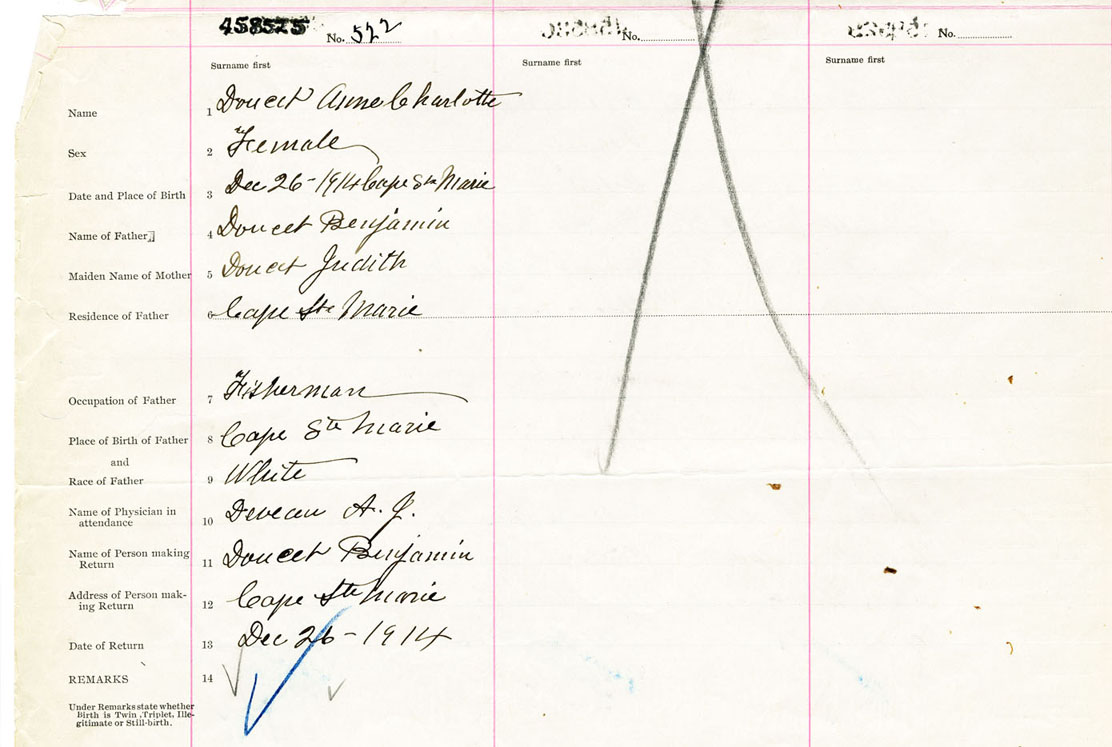 458525 No. 522 No. No.
Surname first Surname first Surname first
Name 1 Doucet Anne Charlotte
Sex 2 Female
Date and Place of Birth 3 Dec 26-1914 Cape Ste Marie
Name of Father 4 Doucet Benjamin
Maiden Name of Mother 5 Doucet Judith
Residence of Father 6 Cape Ste Marie
Occupation of Father 7 Fisherman
Place of Birth of Father 8 Cape Ste Marie
and
Race of Father 9 White
Name of Physician in
attendance 10 Deveau A. J.
Name of Person making
Return 11 Doucet Benjamin
Address of Person mak-
ing Return 12 Cape Ste Marie
Date of Return 13 Dec 26-1914
REMARKS 14
Under Remarks state whether
Birth is Twin, Triplet, Ille-
gitimate or Still-birth.